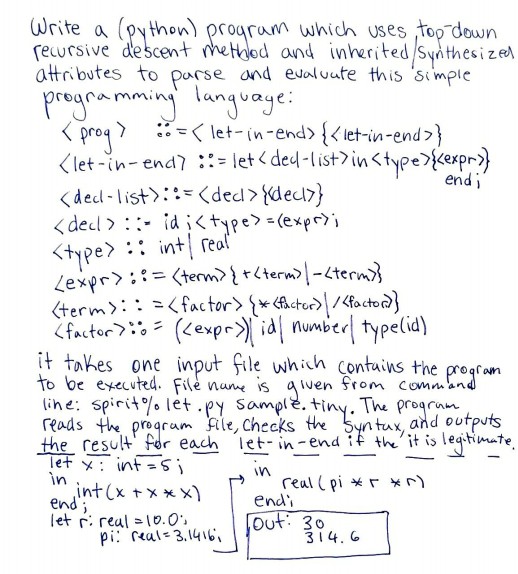 Write a (python) program which uses top-down
recursive descent method and inherited/synthesized
attributes to parse and evaluate this simple
programming language:
<prog> ::= <let-in-end> {<let-in-end>}
<let-in-end> ::= let <decl-list> in <type>(<expr>)
end;
<decl-list> ::= <decl> {<decl>}
<decl> ::- id ; <type> = (expr> ;
<type> :: int | real
<expr> ::= <term> { + <term> | - <term>}
<term> :: = <factor> { * <factor> | / <factor>}
<factor> ::= (<expr>) | id | number | type(id)
it takes one input file which contains the program
to be executed. File name is given from command
line: spirit% let.py sample.tiny. The program
reads the program file, checks the syntax, and outputs
the result for each let-in-end if the it is legitimate.
let x : int = 5 ;
in
int (x + x * x)
end;
let r: real = 10.0;
pi: real = 3.1416;
in
real ( pi * r * r)
end;
Out: 30
314.6